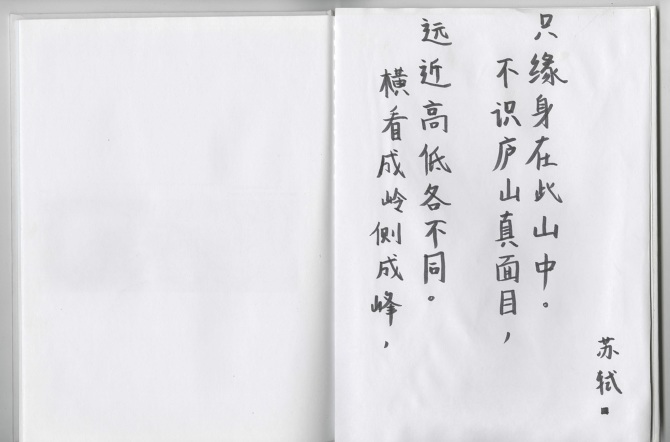 横看成岭侧成峰，
远近高低各不同。
不识庐山真面目，
只缘身在此山中。
苏轼.